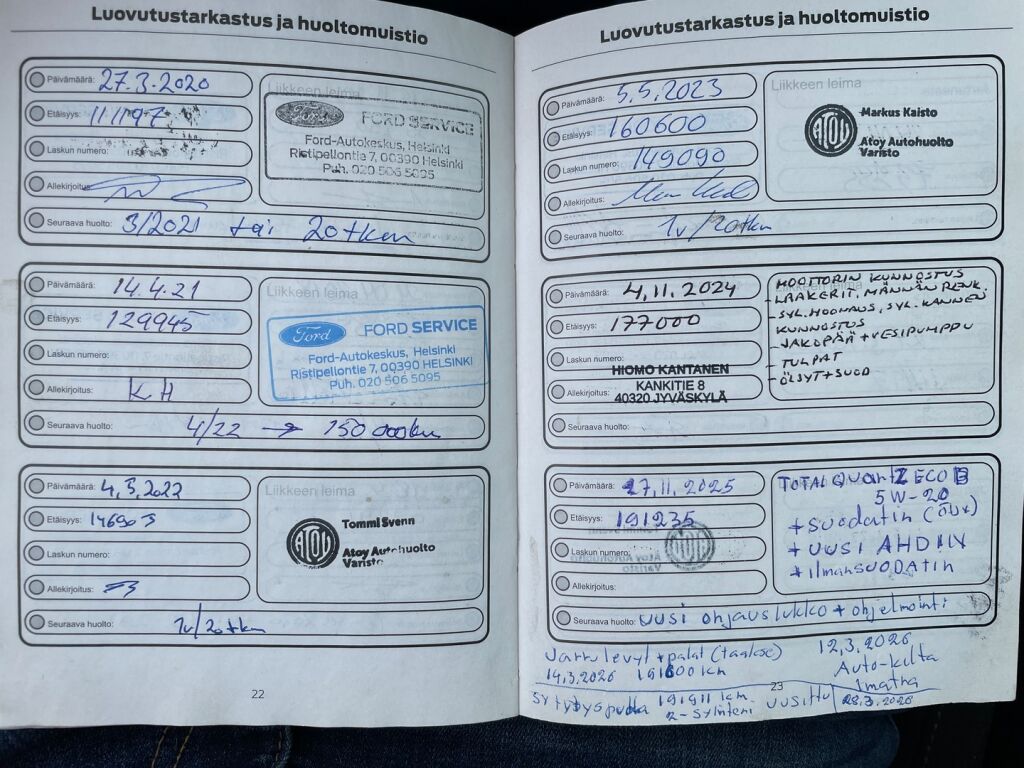 Luovutustarkastus ja huoltomuistio
Päivämäärä: 27.3.2020
Etäisyys:
Laskun numero:
Allekirjoitus:
Seuraava huolto: 3/2021 tai 20tkm
Liikkeen leima
Ford FORD SERVICE
Ford-Autokeskus, Helsinki
Ristipellontie 7, 00390 Helsinki
Puh. 020 506 5095
Päivämäärä: 14.4.21
Etäisyys: 129945
Laskun numero:
Allekirjoitus: KH
Seuraava huolto: 4/22 → 150 000km
Liikkeen leima
Ford FORD SERVICE
Ford-Autokeskus, Helsinki
Ristipellontie 7, 00390 HELSINKI
Puh. 020 506 5095
Päivämäärä: 4.5.2022
Etäisyys:
Laskun numero:
Allekirjoitus:
Seuraava huolto: 1v/20tkm
Liikkeen leima
ATOY
Tommi Svenn
Atoy Autohuolto
Varisto
22
Luovutustarkastus ja huoltomuistio
Päivämäärä: 5.5.2023
Etäisyys: 160600
Laskun numero: 149090
Allekirjoitus:
Seuraava huolto: 1v/20tkm
Liikkeen leima
ATOY
Markus Kaisto
Atoy Autohuolto
Varisto
Päivämäärä: 4.11.2024
Etäisyys: 177000
Laskun numero:
HIOMO KANTANEN
Allekirjoitus: KANKITIE 8
40320 JYVÄSKYLÄ
Seuraava huolto:
MOOTTORIN KUNNOSTUS
- LAAKERIT, MÄNNÄN RENK.
- SYL.HOONAUS, SYL. KANNEN
KUNNOSTUS
- JAKOPÄÄ + VESIPUMPPU
- TULPAT
- ÖLJYT+SUOD
Päivämäärä: 27.11.2025
Etäisyys: 191235
Laskun numero:
Allekirjoitus:
Seuraava huolto: uusi ohjauslukko + ohjelmointi
TOTAL QUARTZ ECO B
5W-20
+ SUODATIN (ÖLJY)
+ UUSI
+ ilmanSUODATIN
Jarrulevyt + palat (taakse)
14.3.2026 191600 km
12.3.2026
Auto-kulta
23
191911 km
2-sylinteri uusittu
28.3.2026